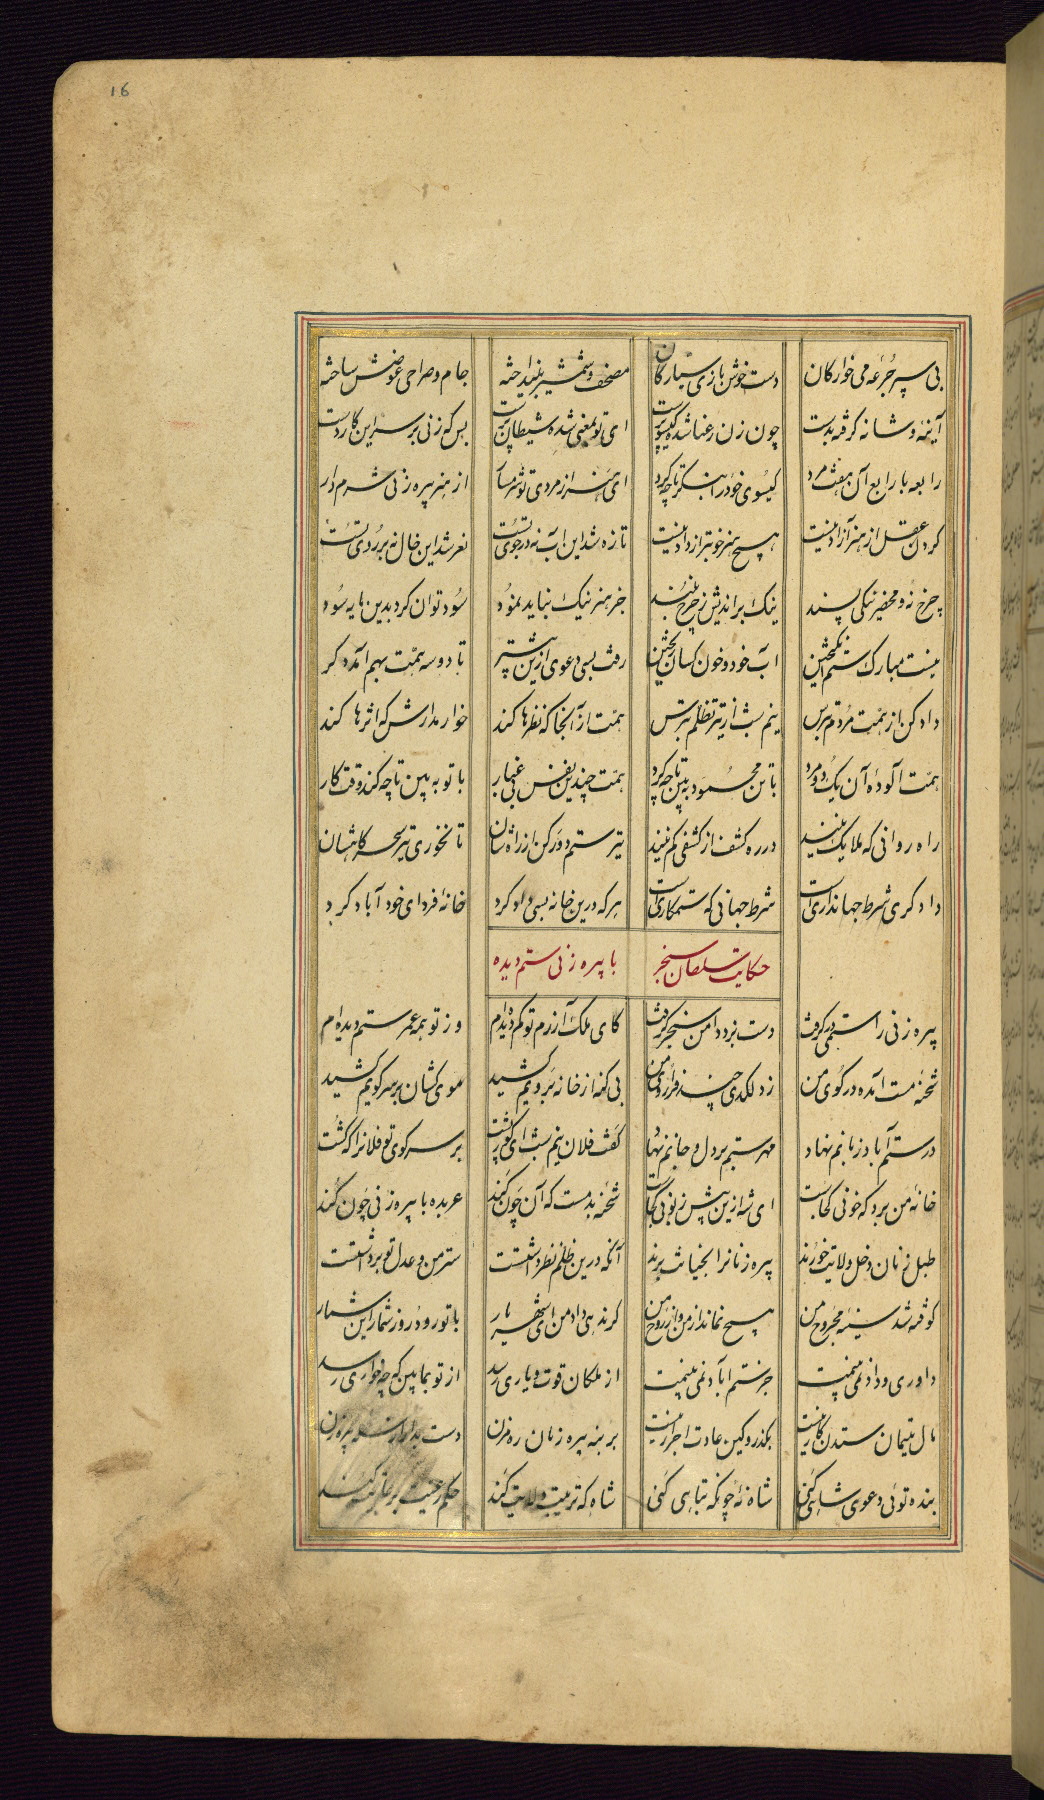 16
بی سپر جرعه می خوارگان دست خوش بازی سیارگان مصحف و شمشیر بینداخته جام و صراحی عوضش ساخته
آینه و شانه گرفته بدست چون زن رعنا شده گیسوپرست ای تو بمعنی شده شیطان پرست بس که زنی بر سر این کار دست
رابعه با رابع آن هفت مرد گیسوی خود را بنگر تا چه کرد ای هنر از مردی تو شرمسار از هنر پیره زنی شرم دار
گردن عقل از هنر آزاد نیست هیچ هنر خوبتر از داد نیست تازه شد این آب نه در جوی تست نغز شد این خال نه بر روی تست
چرخ نه و محضر نیکی پسند نیک براندیش ز چرخ بلند جز هنر نیک نباید نمود سود توان کرد بدین مایه سود
نیست مبارک ستم انگیختن آب خود و خون کسان ریختن رفت بسی دعوی ازین پیشتر تا دو سه همت بهم آمد کر
داد کن از همت مردم بترس نیم شب از تیر تظلم بترس همت از آنجا که نظرها کند خوار مدارش که اثرها کند
همت آلوده آن یک دو مرد با تن محمود ببین تا چه کرد همت چندین نفس بی غبار با تو به بین تا چه کند وقت کار
راه روانی که ملایک پیند در ره کشف از کشفی کم نیند تیر ستم دور کن از راه شان تا نخوری تیر سحرگاهشان
دادگری شرط جهانداری است شرط جهانی که ستمکاری است هر که درین خانه بسی داد کرد خانه فردای خود آباد کرد
حکایت سلطان سنجر با پیره زنی ستم دیده
پیره زنی را ستمی درگرفت دست بزد دامن سنجر گرفت کای ملک آزرم تو کم دیده ام وز تو همه عمر ستم دیده ام
شحنه مست آمده در کوی من زد لگدی چند فرا روی من بی گنه از خانه برویم کشید موی کشان بر سر کویم کشید
در ستم آباد زبانم نهاد مهر ستم بر دل و جانم نهاد گفت فلان نیم شب ای گوژپشت بر سر کوی تو فلان را که کشت
خانه من برد که خونی کجاست ای شه ازین بیش زبونی کجاست شحنه بد مست که آن خون کند عربده با پیره زنی چون کند
طبل زنان دخل ولایت خورند پیره زنان را بجنایت برند آنکه درین ظلم نظر داشتست ستر من و عدل تو برداشتست
کوفته شد سینه مجروح من هیچ نماند از من و از روح من گر ندهی داد من ای شهریار با تو رود روز شمار این شمار
داوری و داد نمی بینمت جز ستم آباد نمی بینمت از ملکان قوت و یاری رسد از تو بما بین که چه خواری رسد
مال یتیمان ستدن کار نیست بگذر و کین عادت احرار نیست بر بنه پیره زنان ره مزن
بنده توئی دعوی شاهی کنی شاه نه چونکه تباهی کنی شاه که ترتیب ولایت کند